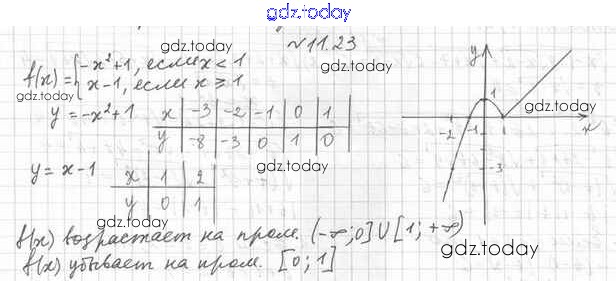 gdz.today
gdz.today
№11.23
f(x) = { -x²+1, если x < 1
x-1, если x ⩾ 1
gdz.today
y = -x²+1
x | -3 | -2 | -1 | 0 | 1
y | -8 | -3 | 0 | 1 | 0
gdz.today
y = x-1
x | 1 | 2
y | 0 | 1
gdz.today
y
1
gdz.today
-2 -1 1 x
-1
-3
f(x) возрастает на пром. (-∞;0]∪[1;+∞)
gdz.today
f(x) убывает на пром. [0;1]